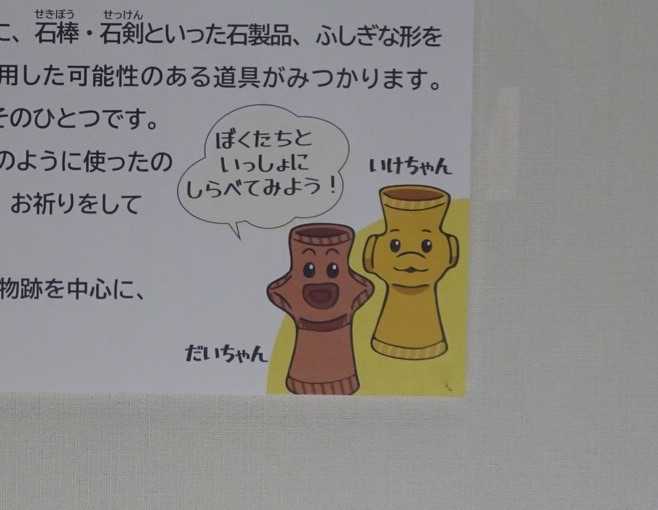 に、石棒・石剣といった石製品、ふしぎな形を
せきぼう せっけん
用した可能性のある道具がみつかります。
そのひとつです。
のように使ったの
お祈りをして
物跡を中心に、
ぼくたちと
いっしょに
しらべてみよう！
いけちゃん
だいちゃん